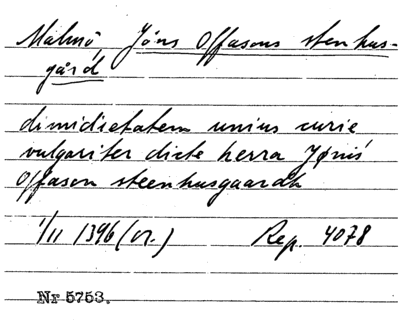 Malmö, Jöns Offasons stenhus-
gård
dimidietatem unius curie
vulgariter dicte herra Jønis
Offason steenhusgaardh
1/11 1396 (or.) Rep. 4078
Nr 5753.